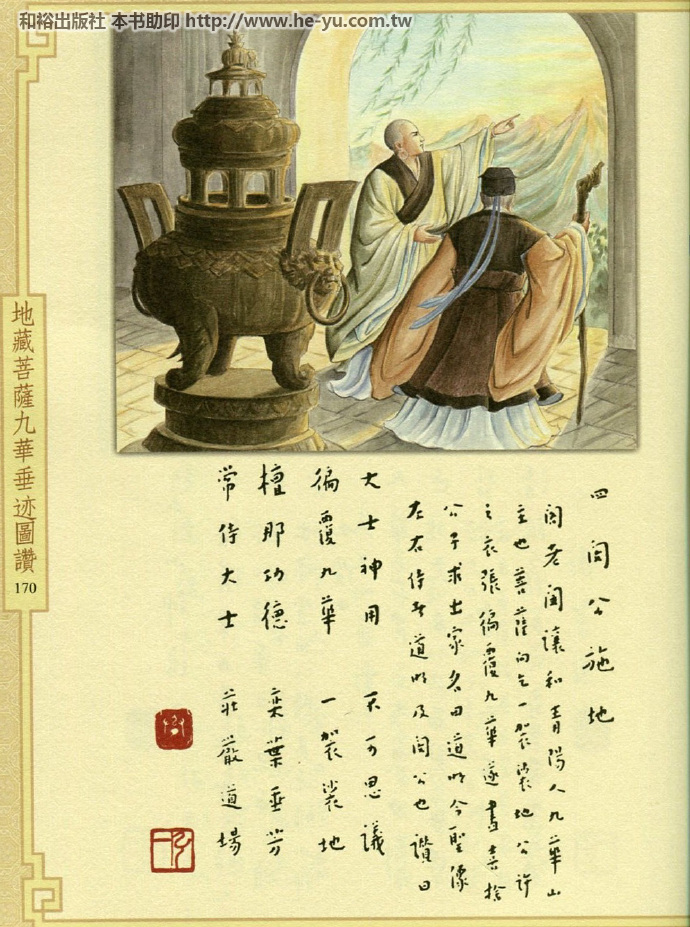 和裕出版社 本书助印 http://www.he-yu.com.tw
地藏菩薩九華垂迹圖讚
170
四 閔公施地
閔老閔讓和青陽人九華山
主也菩薩向乞一袈裟地公許
之衣張徧覆九華遂盡喜捨
公子求出家名曰道明今聖像
左右侍者道明及閔公也讚曰
大士神用 不可思議
徧覆九華 一袈裟地
檀那功德 奕葉垂芳
常侍大士 莊嚴道場